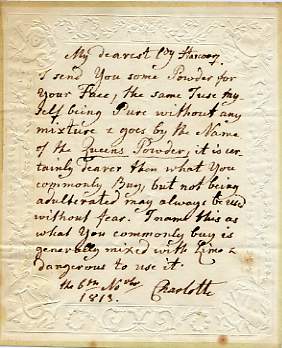 My dearest Ly Harcourt.
I send You some Powder for
Your Face, the same I use my
self being Pure without any
mixture & goes by the Name
of the Queens Powder, it is cer-
tainly dearer then what You
commonly Buy, but not being
adulterated may always be used
without fear. I name this as
what You commonly buy is
generally mixed with Lime &
dangerous to use it.
the 6th Novbr
1813. Charlotte